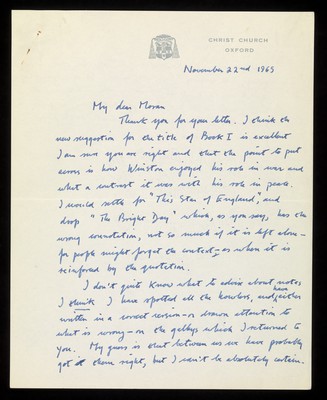 CHRIST CHURCH
OXFORD
November 22nd 1965
My dear Moran
Thank you for your letter. I think the
new suggestion for the title of Book I is excellent
I am sure you are right and that the point to put
across is how Winston enjoyed his role in war and
what a contrast it was with his role in peace.
I would settle for "This Star of England", and
drop "The Bright Day" which, as you say, has the
wrong connotation, not so much if it is left alone -
for people might forget the context - as when it is
reinforced by the quotation.
I don't quite know what to advise about notes
I think I have spotted all the howlers, and have either
written in a correct version - or drawn attention to
what is wrong - on the galleys which I returned to
you. My guess is that between us we have probably
got them right, but I can't be absolutely certain.